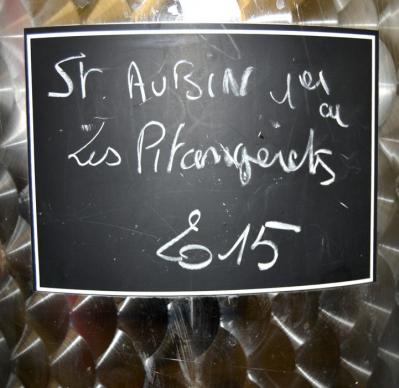 St. AUBIN 1er
cru
Les Pitangerets
£ 15